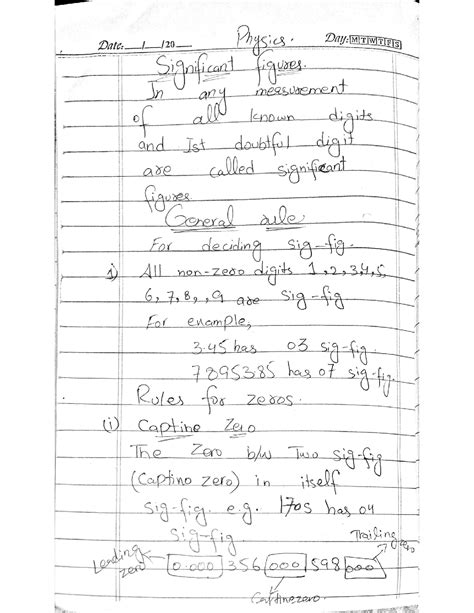 Physics.
Date:__/__/20__ Day: M T W T F S
Significant figures.
In any measurement
of all known digits
and Ist doubtful digit
are called significant
figures.
General rule
For deciding sig-fig.
1) All non-zero digits 1,2,3,4,5,
6,7,8,,9 are sig-fig
For enample,
3.45 has 03 sig-fig
7895385 has 07 sig-fig.
Rules for zeros.
(i) Captine Zero
The Zero b/w Two sig-fig
(Captino zero) in itself
sig-fig. e.g. 1705 has 04
sig-fig.
Trailing zero
Leading zero 0.000 356 000 598 000
Captinezero.